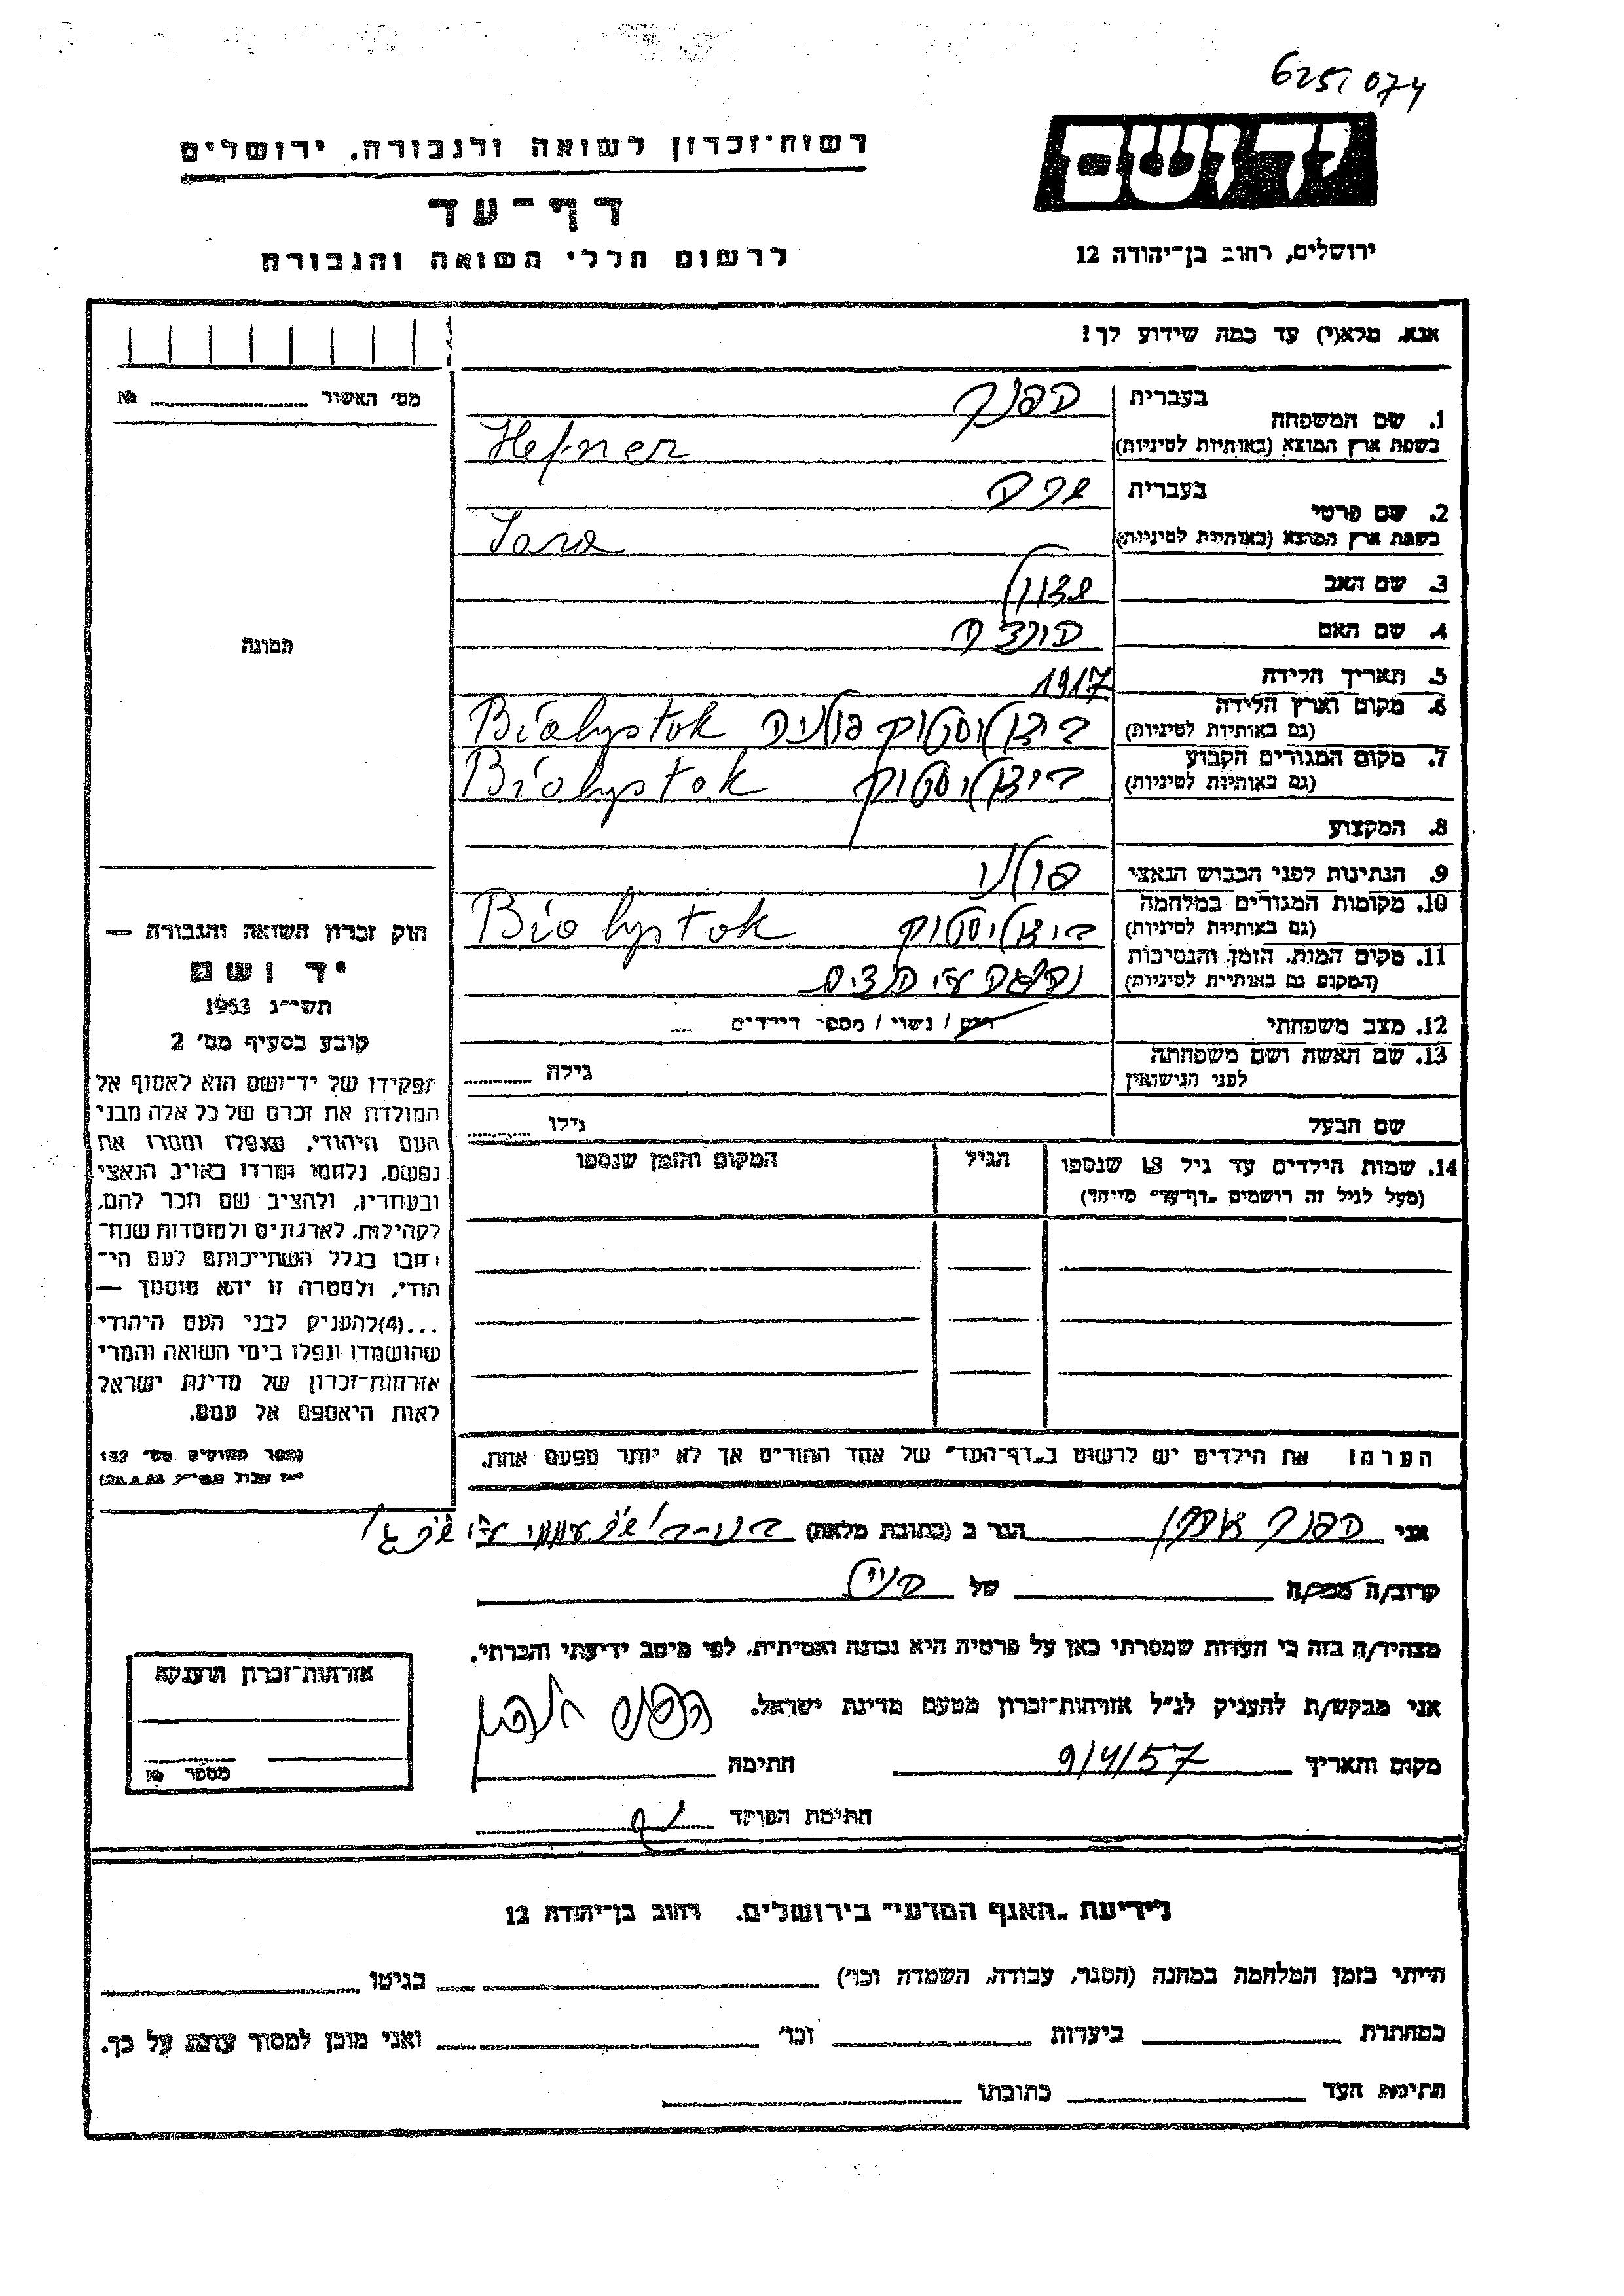 6251074
יד ושם
רשות־זכרון לשואה ולגבורה, ירושלים
דף־עד
ירושלים, רחוב בן־יהודה 12
לרשום חללי השואה והגבורה
אנא, מלא(י) עד כמה שידוע לך!
מס׳ האשור № 
1. שם המשפחה בעברית הפנר
בשפת ארץ המוצא (באותיות לטיניות) Hefner
2. שם פרטי בעברית שרה
בשפת ארץ המוצא (באותיות לטיניות) Sara
3. שם האב
4. שם האם
תמונה
5. תאריך הלידה 1917
6. מקום וארץ הלידה (גם באותיות לטיניות) ביאליסטוק פולניה Białystok
7. מקום המגורים הקבוע (גם באותיות לטיניות) ביאליסטוק Białystok
8. המקצוע
9. הנתינות לפני הכבוש הנאצי פולני
10. מקומות המגורים במלחמה (גם באותיות לטיניות) ביאליסטוק Białystok
11. מקום המות, הזמן והנסיבות (המקום גם באותיות לטיניות) נהרגה ע״י הנאצים
12. מצב משפחתי רוק / נשוי / מספר הילדים
13. שם האשה ושם משפחתה לפני הנישואין גילה
שם הבעל גילו
14. שמות הילדים עד גיל 18 שנספו הגיל המקום והזמן שנספו
(מעל לגיל זה רושמים „דף־עד״ מיוחד)
חוק זכרון השואה והגבורה —
יד ושם
תשי״ג 1953
קובע בסעיף מס׳ 2
תפקידו של יד־ושם הוא לאסוף אל
המולדת את זכרם של כל אלה מבני
העם היהודי, שנפלו ומסרו את
נפשם, נלחמו ומרדו באויב הנאצי
ובעוזריו, ולהציב שם וזכר להם,
לקהילות, לארגונים ולמוסדות שנח־
רבו בגלל השתייכותם לעם הי־
הודי, ולמטרה זו יהא מוסמך —
...(4) להעניק לבני העם היהודי
שהושמדו ונפלו בימי השואה והמרי
אזרחות־זכרון של מדינת ישראל
לאות היאספם אל עמם.
(ספר החוקים מס׳ 132
הערה: את הילדים יש לרשום ב„דף־העד״ של אחד ההורים אך לא יותר מפעם אחת.
אני הפנר אהרן הגר ב (כתובת מלאה)
קרוב/ה מכר/ה של הנ״ל
מצהיר/ה בזה כי העדות שמסרתי כאן על פרטיה היא נכונה ואמיתית, לפי מיטב ידיעתי והכרתי.
אני מבקש/ת להעניק לנ״ל אזרחות־זכרון מטעם מדינת ישראל. הפנר אהרן
מקום ותאריך 9/4/57 חתימה
חתימת הפוקד
אזרחות־זכרון הוענקה
מספר №
לידיעת „האגף המדעי״ בירושלים, רחוב בן־יהודה 12
הייתי בזמן המלחמה במחנה (הסגר, עבודה, השמדה וכו׳) בגיטו
במחתרת ביערות וכו׳ ואני מוכן למסור עדות על כך.
חתימת העד כתובתו